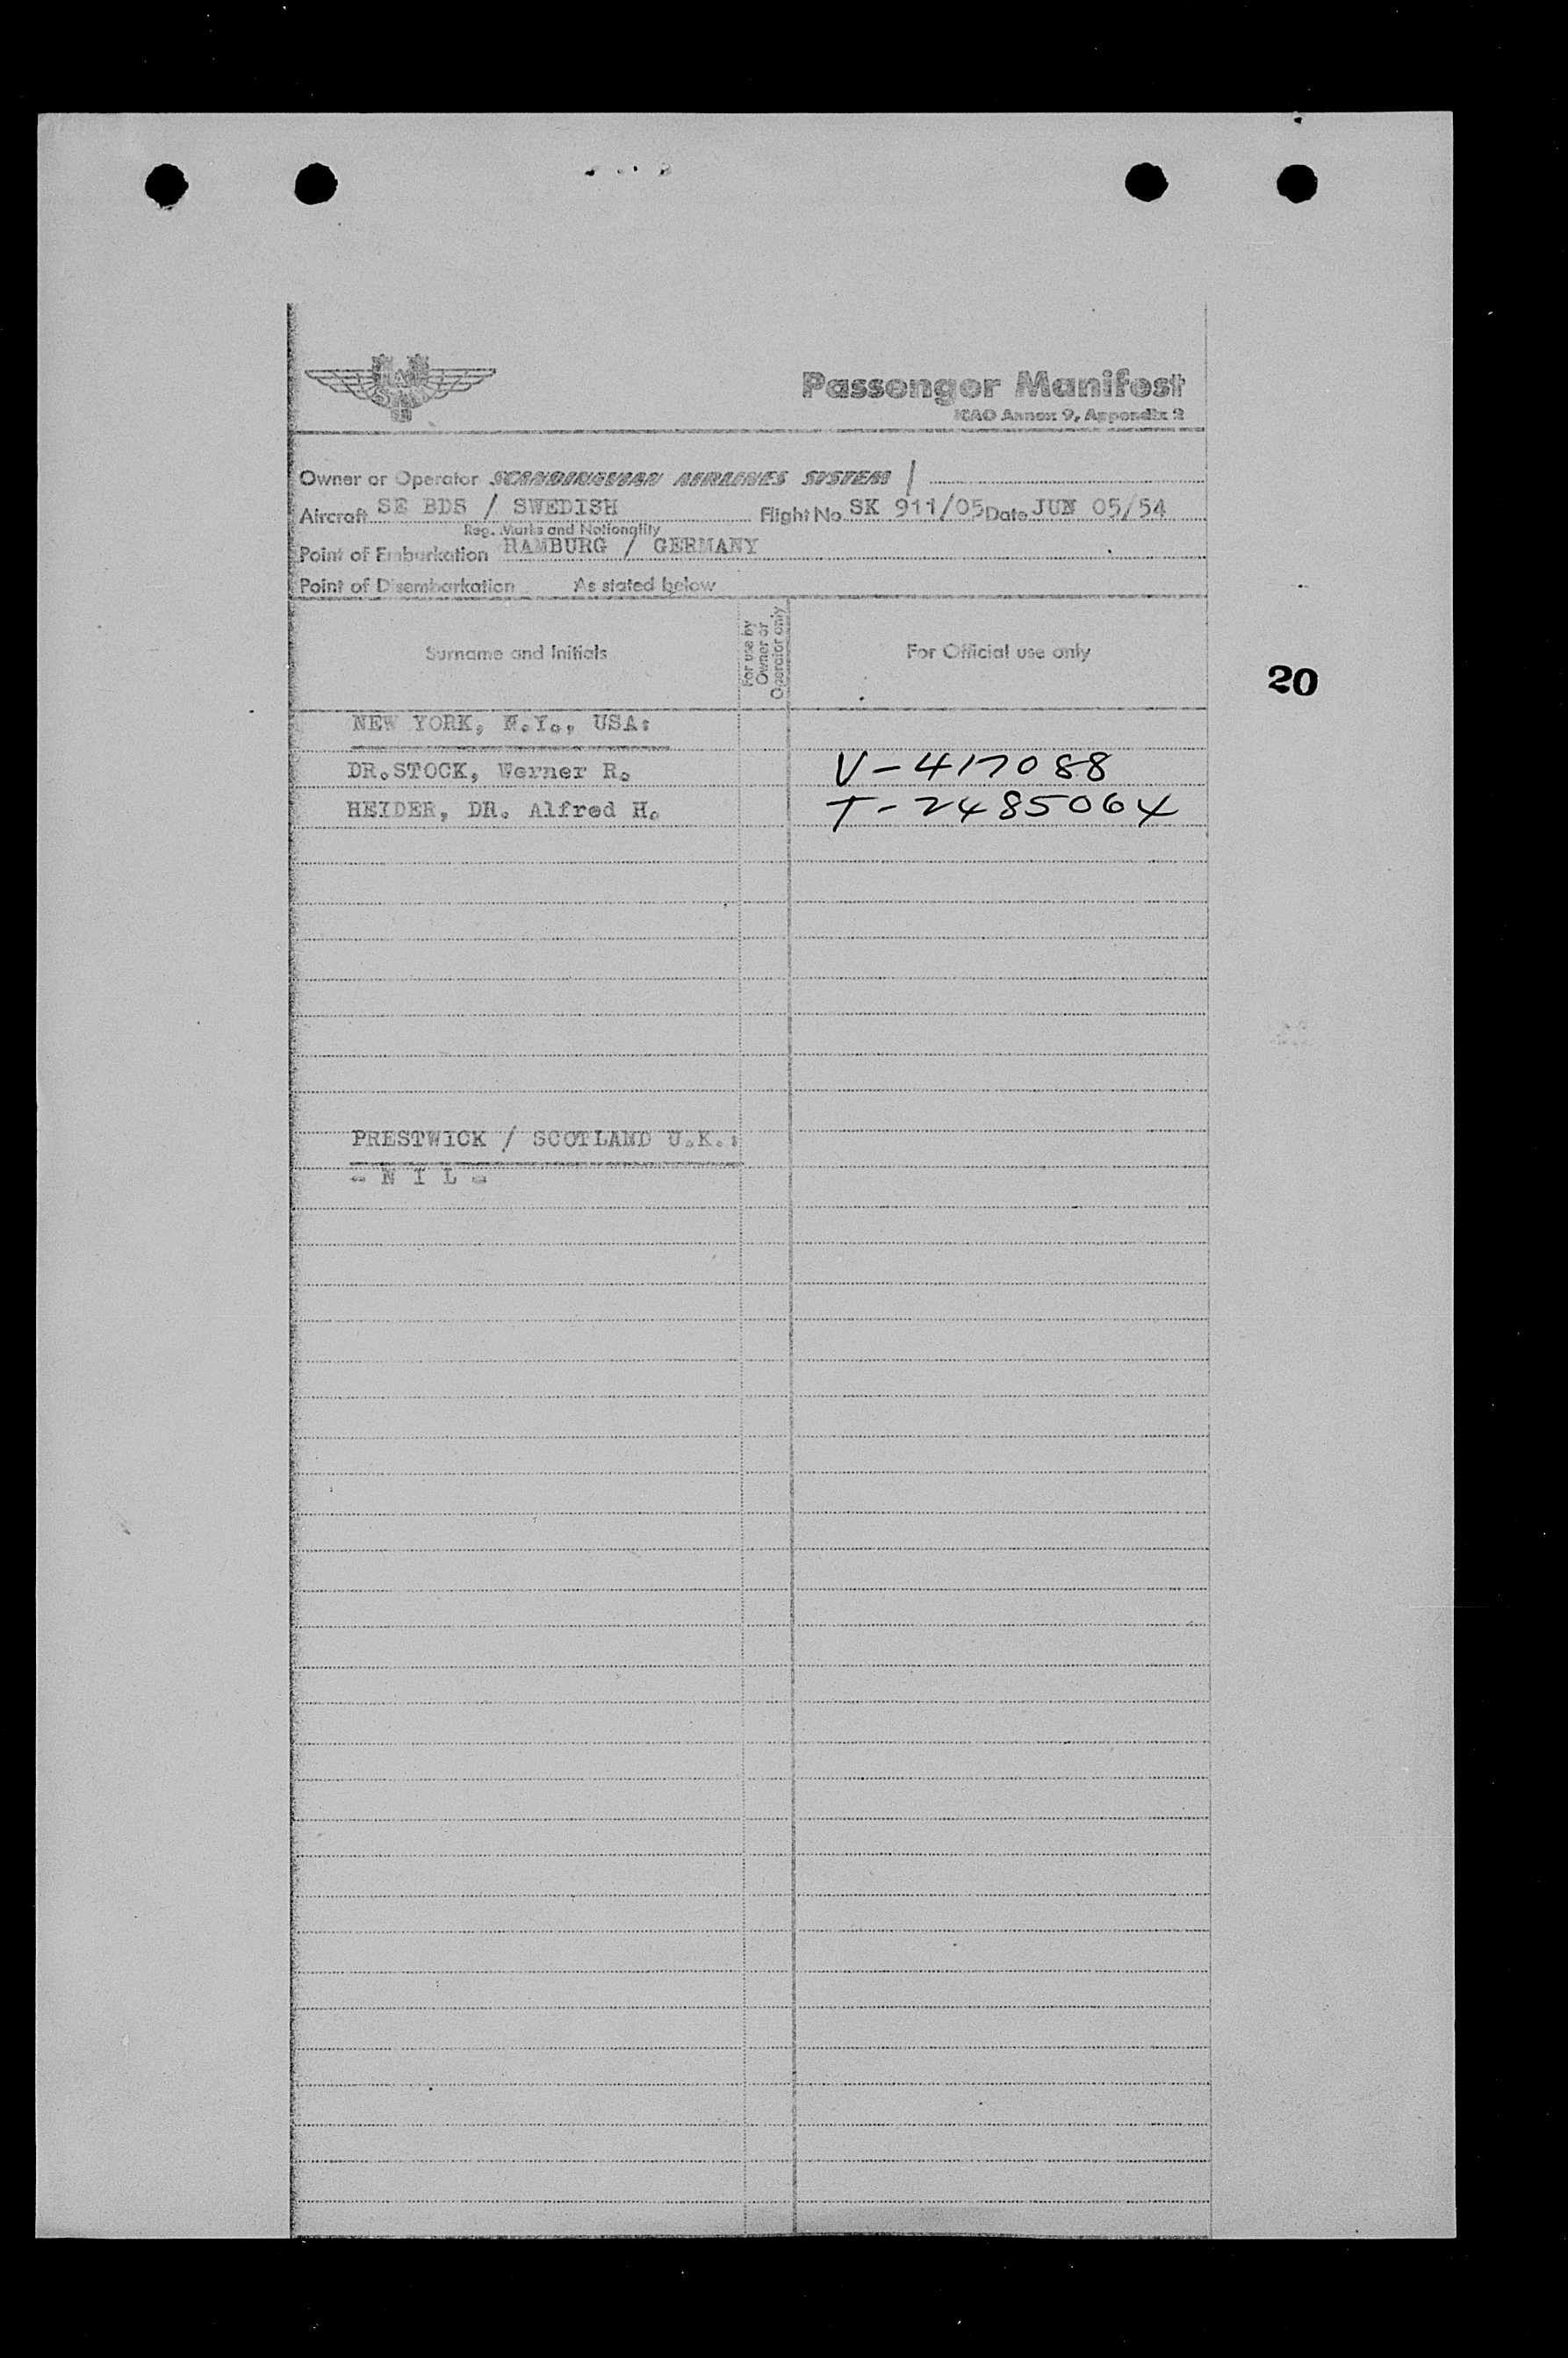 SAS
Passenger Manifest
ICAO Annex 9, Appendix 2
Owner or Operator SCANDINAVIAN AIRLINES SYSTEM /
Aircraft SE BDS / SWEDISH Flight No. SK 911/05 Date JUN 05/54
Reg. Marks and Nationality
Point of Embarkation HAMBURG / GERMANY
Point of Disembarkation As stated below
Surname and Initials For use by Owner or Operator only For Official use only
20
NEW YORK, N.Y., USA:
DR.STOCK, Werner R. V-417088
HEIDER, DR. Alfred H. T-2485064
PRESTWICK / SCOTLAND U.K.:
- N I L -